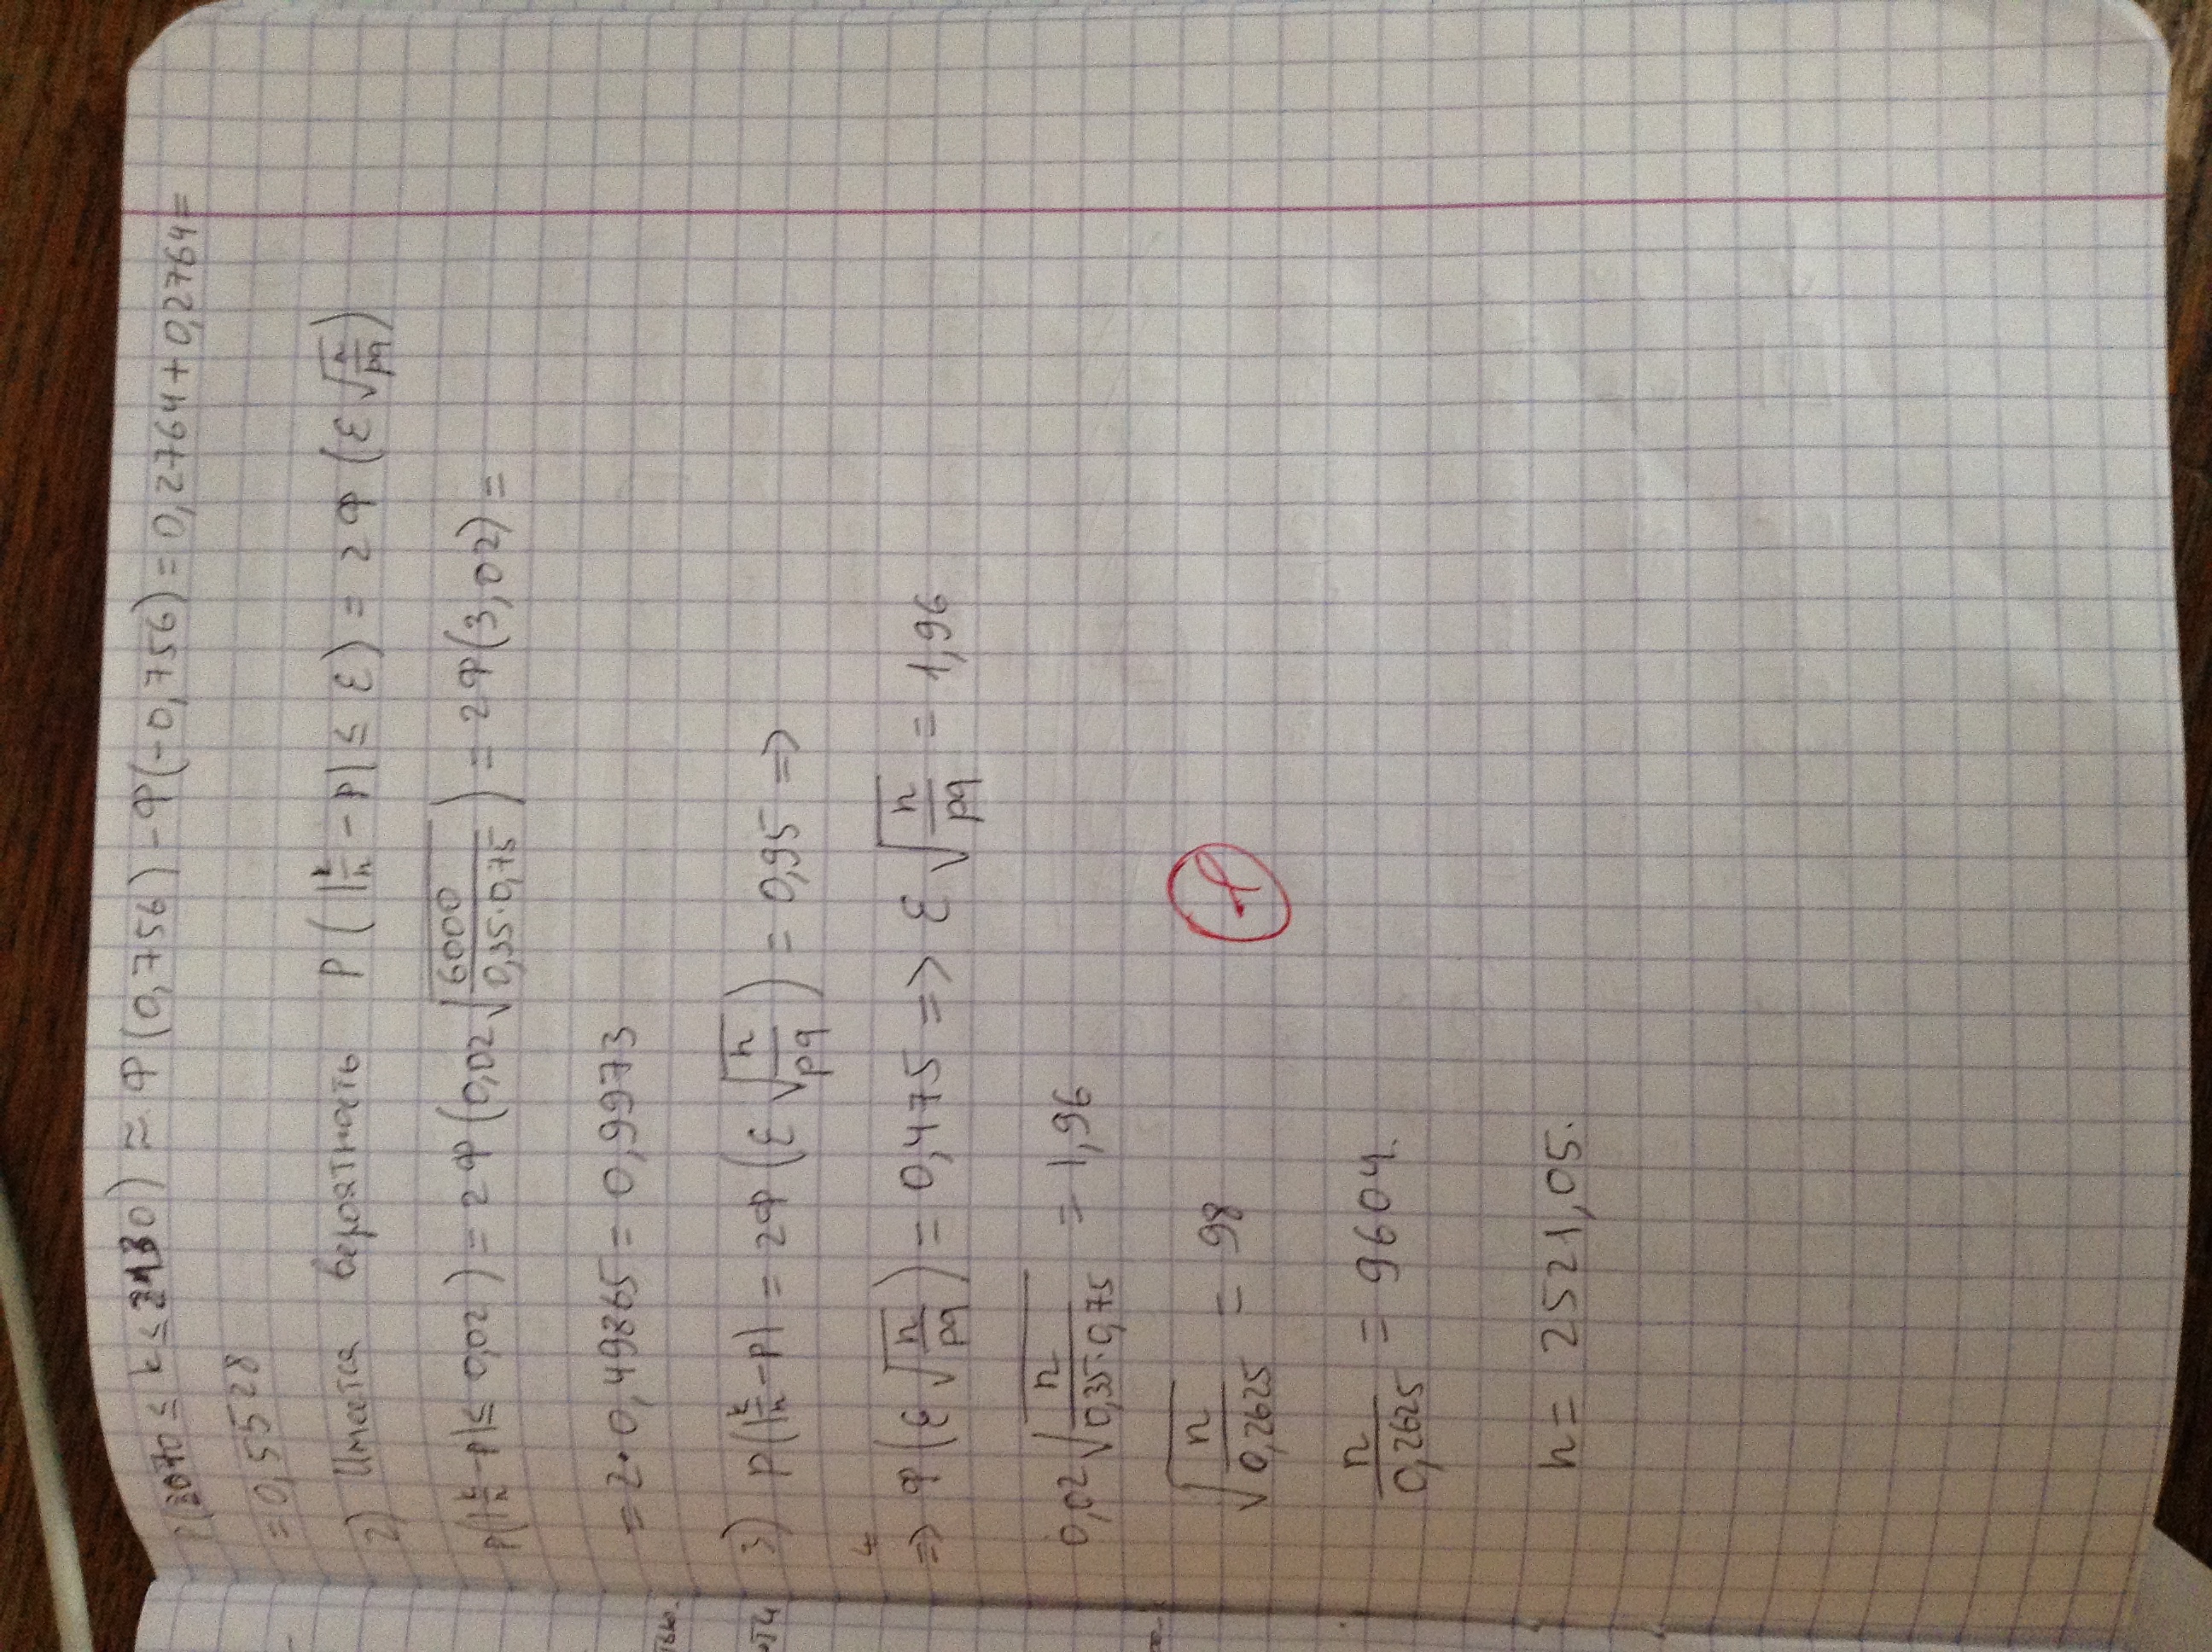 P(2070 ≤ k ≤ 2130) ≈ Ф(0,756) - Ф(-0,756) = 0,2764 + 0,2764 =
= 0,5528
2) Имеется вероятность P(|k/n - p| ≤ ε) = 2Ф(ε√(n/pq))
P(|k/n - p| ≤ 0,02) = 2Ф(0,02√(6000/0,35·0,75)) = 2Ф(3,02) =
= 2·0,49865 = 0,9973
3) P(|k/n - p| = 2Ф(ε√(n/pq)) = 0,95 =>
=> Ф(ε√(n/pq)) = 0,475 => ε√(n/pq) = 1,96
0,02√(n/0,35·0,75) = 1,96
√(n/0,2625) = 98
n/0,2625 = 9604.
n = 2521,05.